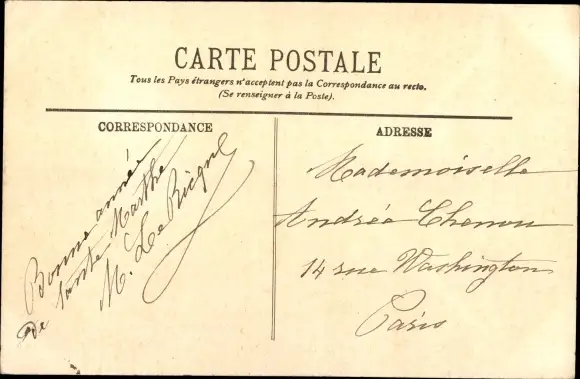 CARTE POSTALE
Tous les Pays étrangers n'acceptent pas la Correspondance au recto.
(Se renseigner à la Poste).
CORRESPONDANCE
Bonne année
de tante Marthe
M. Le
ADRESSE
Mademoiselle
Andrée Chenou
14 rue Washington
Paris